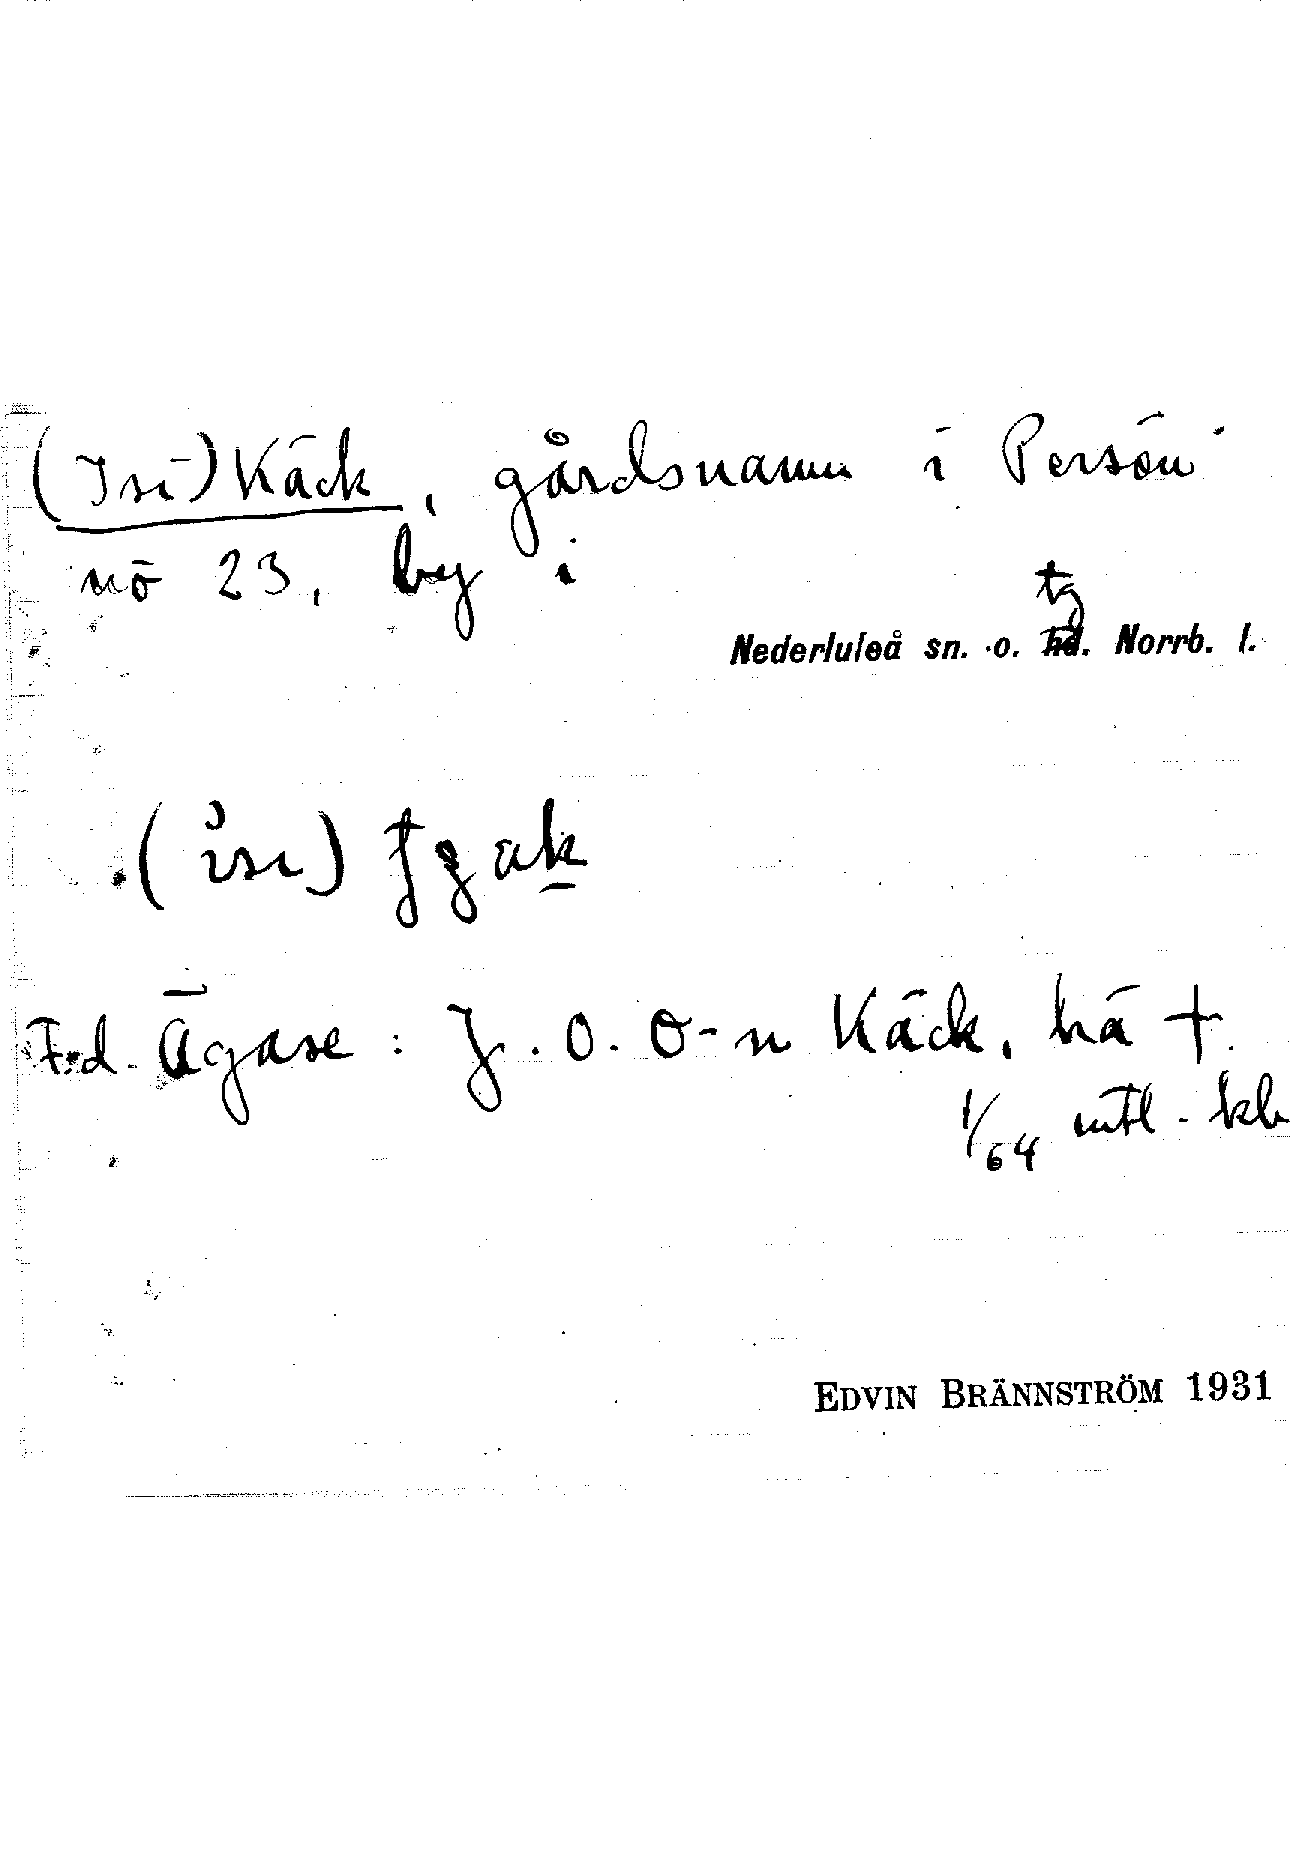 (Isi) Käck, gårdsnamn i Persön
nö 23, by i
tg
Nederluleå sn. o. hd. Norrb. l.
(isi)
F.d. Ägare: J. O. O-n Käck, hä †.
1/64 mtl - kb
EDVIN BRÄNNSTRÖM 1931